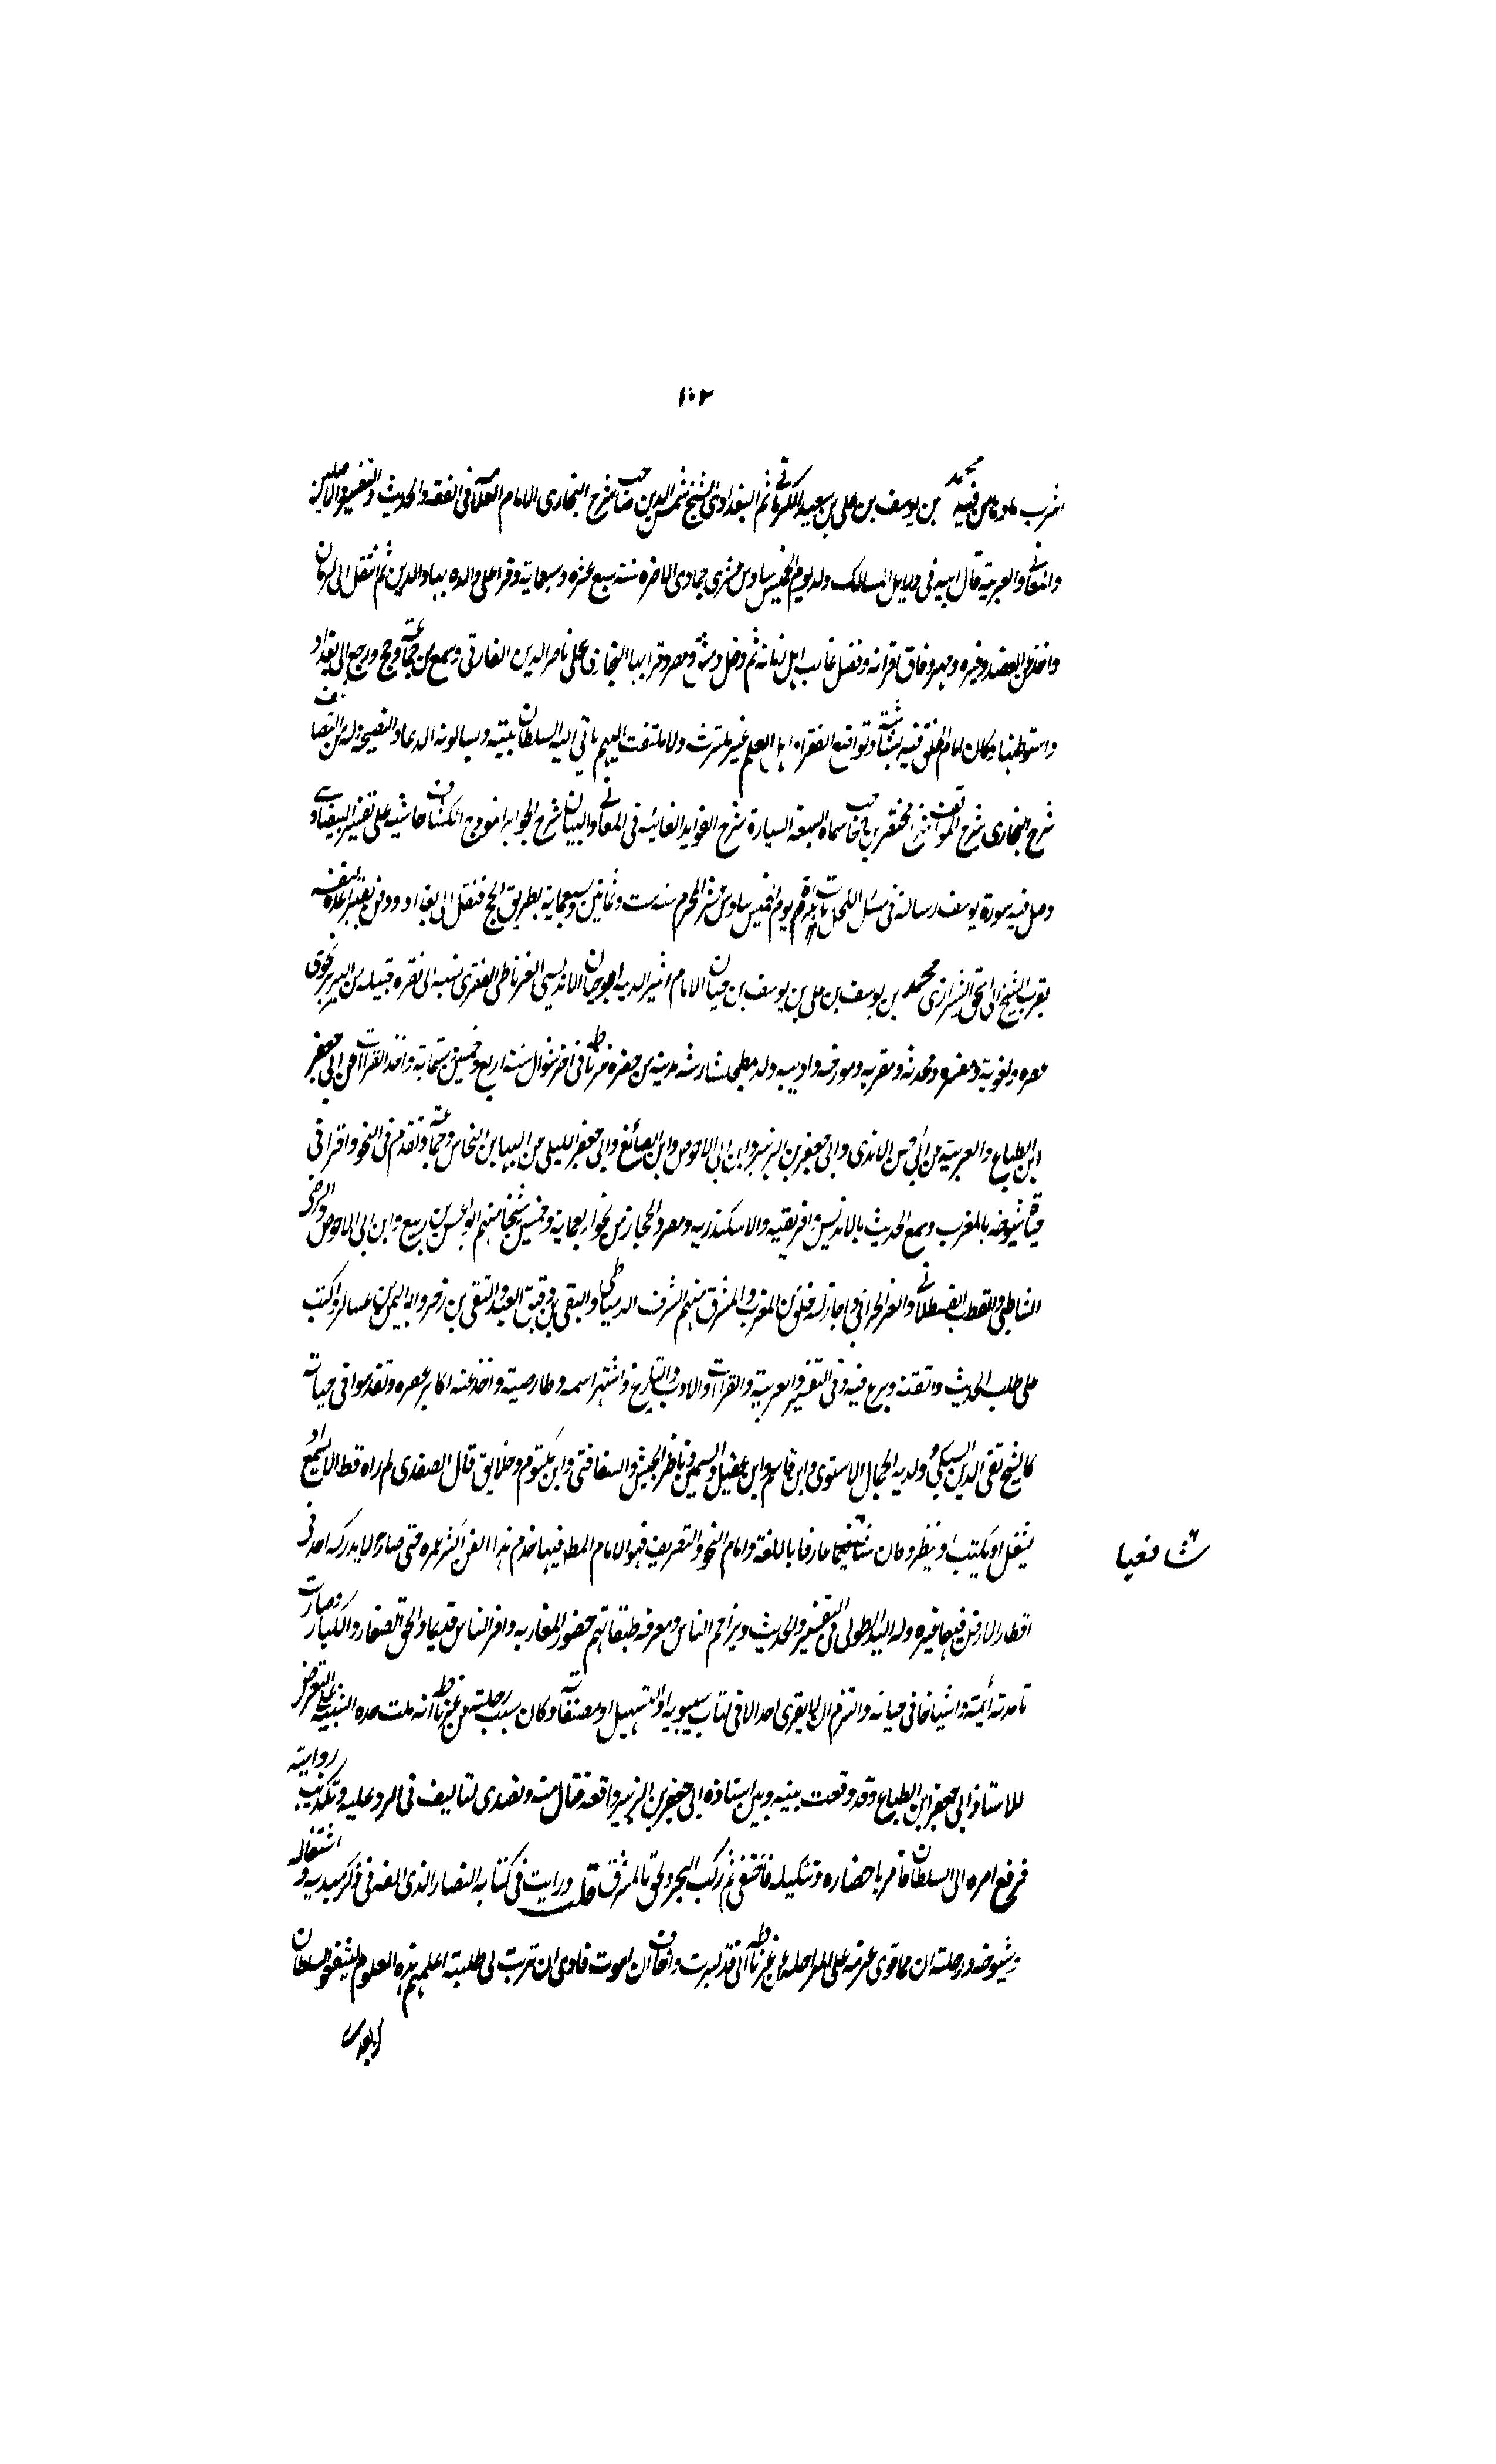 ١٠٢
محمد بن يوسف بن علي بن سعيد الكرماني ثم البغدادي الشيخ شمس الدين صاحب شرح البخاري الامام العلامة في الفقه والحديث والتفسير والاصلين
والمعاني والعربية قال ابنه في ولد يوم الخميس سادس عشري جمادى الاخرة سنة سبع عشرة وسبعماية وقرا على والده بهاء الدين ثم انتقل الى كرمان
واخذ عن العضد وغيره ومهر وفاق اقرانه وفضل غالب اهل زمانه ثم دخل دمشق ومصر وقرا بها البخاري على ناصر الدين الفارقي وسمع من جماعة وحج ورجع الى بغداد
واستوطنها وكان تام الخلق فيه بشاشة وتواضع للفقراء واهل العلم غير مكترث ولا ملتفت اليهم ياتي اليه السلطان بيته ويسالونه الدعاء والنصيحة وله من التصانيف
شرح البخاري شرح المواقف شرح مختصر ابن الحاجب سماه السبعة السيارة شرح الفوايد الغاثيه في المعاني والبيان شرح الجواهر انموذج الكشاف حاشية على تفسير البيضاوي
وصل فيه سورة يوسف رسالة في مسئلة الكحل مات يوم الخميس سادس عشر المحرم سنة ست وثمانين وسبعماية بطريق الحج فنقل الى بغداد ودفن بقبر اعده لنفسه
بقرب الشيخ ابي اسحق الشيرازي محمد بن يوسف بن علي بن يوسف بن حيان الامام اثير الدين ابو حيان الاندلسي الغرناطي النفزي نسبه الى نفزه قبيله من البربر نحوي
عصره ولغويه ومفسره ومحدثه ومقريه ومورخه واديبه ولد بمطخشارش مدينه من حضرة غرناطه في اخر شوال سنة اربع وخمسين وستماية واخذ القراات عن ابي جعفر
ابن الطباع والعربية عن ابي الحسن الابذي وابي جعفر بن الزبير وابن ابي الاحوص وابن الصائغ وابي جعفر اللبلي من البهاء بن النحاس وجماعة وتقدم في النحو واقرا في
حياة شيوخه بالمغرب وسمع الحديث بالاندلس وافريقيه والاسكندريه ومصر والحجاز من نحو اربعماية وخمسين شيخا منهم ابو الحسن بن ربيع وابن ابي الاحوص والرضي
الشاطبي والقطب القسطلاني والعز الحراني واجاز له خلق من المغرب والمشرق منهم الشرف الدمياطي والتقي بن دقيق العيد والتقي بن رزين وابو اليمن بن عساكر واكب
على طلب الحديث واتقنه وبرع فيه وفي التفسير والعربية والقراات والادب والتاريخ واشتهر اسمه وطار صيته واخذ عنه اكابر عصره وتقدموا في حياته
كالشيخ تقي الدين السبكي وولديه الجمال الاسنوي وابن قاسم وابن عقيل والسمين وناظر الجيش والسفاقسي وابن مكتوم وخلايق قال الصفدي لم اره قط الا يسمع او
يشغل او يكتب او ينظر وكان عارفا باللغة وامام النحو والتصريف فهو الامام المطلق فيها خدم هذا الفن اكثر عمره حتى صار لا يدركه احد في
شافعيا
اقطار الارض فيهما غيره وله اليد الطولى في التفسير والحديث وتراجم الناس ومعرفة طبقاتهم خصوصا المغاربه واقرا الناس قديما والحق الصغار والكبار وصارت
تلامذته ائمة واشياخا في حياته والتزم ان لا يقري احدا الا في كتاب سيبويه او التسهيل او مصنفاته وكان سبب رحلته من غرناطه انه حملته حدة الشبيبة على التعرض
للاستاذ ابي جعفر ابن الطباع وقد وقعت بينه وبين استاذه ابي جعفر بن الزبير واقعة فنال منه وتصدى لتاليف في الرد عليه وتكذيب روايته
فرفع امره الى السلطان فامر باحضاره وتنكيله فاختفى ثم ركب البحر ولحق بالمشرق قلت ورايت في كتابه النضار الذي الفه في ذكر مبديه واشتغاله
وشيوخه ورحلته ان مما قوى عزمه على الرحلة عن غرناطه ان